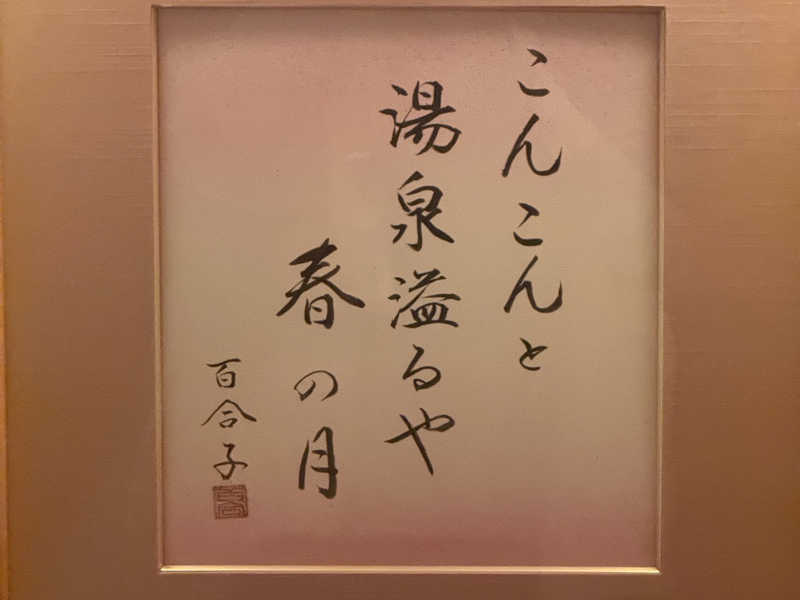 こんこんと
湯泉溢るや
春の月
百合子